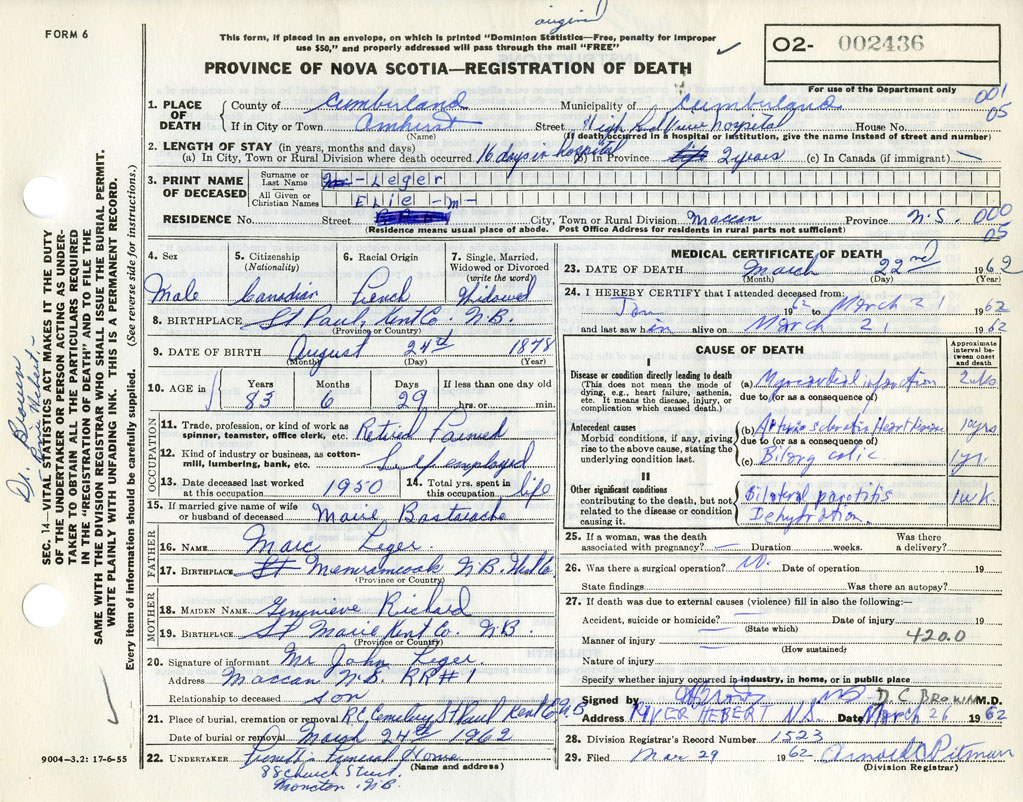 original
FORM 6
This form, if placed in an envelope, on which is printed "Dominion Statistics—Free, penalty for improper
use $50," and properly addressed will pass through the mail "FREE"
O2- 002436
For use of the Department only
PROVINCE OF NOVA SCOTIA—REGISTRATION OF DEATH
001
05
1. PLACE OF DEATH
County of Cumberland Municipality of Cumberland
If in City or Town Amherst Street Highland View Hospital House No.
(Name) (If death occurred in a hospital or institution, give the name instead of street and number)
2. LENGTH OF STAY (in years, months and days)
(a) In City, Town or Rural Division where death occurred. 16 days in hospital (b) In Province 2 years (c) In Canada (if immigrant) —
3. PRINT NAME OF DECEASED
Surname or Last Name - Leger
All Given or Christian Names Elie - M -
RESIDENCE No. Street City, Town or Rural Division Maccan Province N.S. 000
05
(Residence means usual place of abode. Post Office Address for residents in rural parts not sufficient)
4. Sex Male
5. Citizenship (Nationality) Canadian
6. Racial Origin French
7. Single, Married, Widowed or Divorced (write the word) Widowed
8. BIRTHPLACE St Paul, Kent Co. N.B.
(Province or Country)
9. DATE OF BIRTH August 24th 1878
(Month) (Day) (Year)
10. AGE in Years 83 Months 6 Days 29 If less than one day old hrs. or min.
OCCUPATION
11. Trade, profession, or kind of work as spinner, teamster, office clerk, etc. Retired
12. Kind of industry or business, as cotton-mill, lumbering, bank, etc. Self employed
13. Date deceased last worked at this occupation 1950
14. Total yrs. spent in this occupation life
15. If married give name of wife or husband of deceased Marie Bastarache
FATHER
16. NAME Marc Leger
17. BIRTHPLACE St Memramcook N.B. West Co
(Province or Country)
MOTHER
18. MAIDEN NAME Genevieve Richard
19. BIRTHPLACE St Marie Kent Co. N.B.
(Province or Country)
20. Signature of informant Mr John Leger.
Address Maccan N.S. RR#1
Relationship to deceased son
21. Place of burial, cremation or removal R.C. Cemetery St Paul Kent Co N.B
Date of burial or removal March 24th 1962
22. UNDERTAKER Funeral Home
(Name and address)
88 Church Street
Moncton N.B.
9004—3.2: 17-6-55
MEDICAL CERTIFICATE OF DEATH
23. DATE OF DEATH March 22nd 1962
(Month) (Day) (Year)
24. I HEREBY CERTIFY that I attended deceased from:
Jan 1962 to March 21 1962
and last saw him alive on March 21 1962
CAUSE OF DEATH
Approximate interval between onset and death
I
Disease or condition directly leading to death
(This does not mean the mode of dying, e.g., heart failure, asthenia, etc. It means the disease, injury, or complication which caused death.)
(a) Myocardial infarction
due to (or as a consequence of)
Antecedent causes
Morbid conditions, if any, giving rise to the above cause, stating the underlying condition last.
(b) Arteriosclerotic Heart Disease 10 yrs
due to (or as a consequence of)
(c) Biliary colic 1 yr.
II
Other significant conditions
contributing to the death, but not related to the disease or condition causing it.
Bilateral parotitis 1 wk.
Dehydration.
25. If a woman, was the death associated with pregnancy? — Duration weeks. Was there a delivery?
26. Was there a surgical operation? No. Date of operation 19
State findings Was there an autopsy?
27. If death was due to external causes (violence) fill in also the following:—
Accident, suicide or homicide? — Date of injury 19
(State which)
Manner of injury — 420.0
(How sustained)
Nature of injury
Specify whether injury occurred in industry, in home, or in public place
Signed by D.C. BROWN M.D.
Address RIVER HEBERT N.S. Date March 26 1962
28. Division Registrar's Record Number 1523
29. Filed Mar 29 1962 Arnold C Pitman
(Division Registrar)
SEC. 14—VITAL STATISTICS ACT MAKES IT THE DUTY
OF THE UNDERTAKER OR PERSON ACTING AS UNDER-
TAKER TO OBTAIN ALL THE PARTICULARS REQUIRED
IN THE "REGISTRATION OF DEATH" AND TO FILE THE
SAME WITH THE DIVISION REGISTRAR WHO SHALL ISSUE THE BURIAL PERMIT.
WRITE PLAINLY WITH UNFADING INK. THIS IS A PERMANENT RECORD.
Every item of information should be carefully supplied. (See reverse side for instructions.)
Dr. Brown
River Hebert -